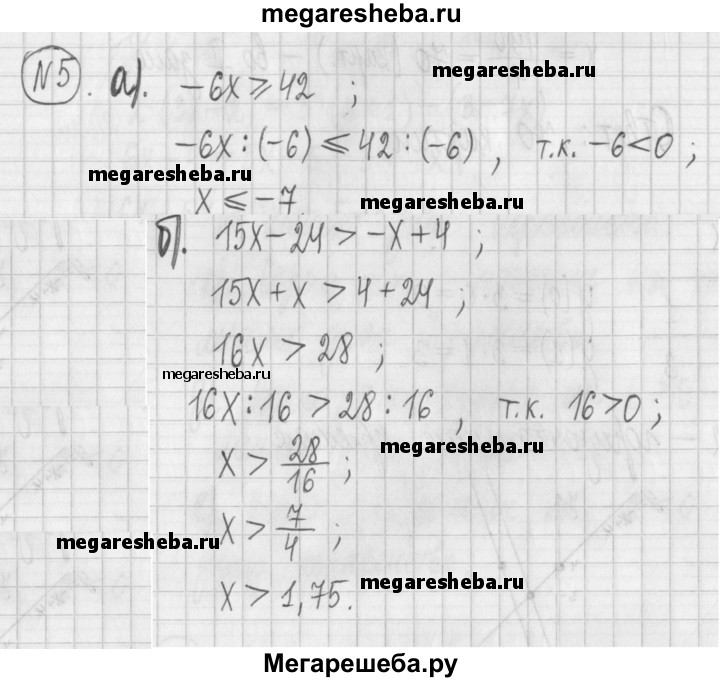 megaresheba.ru
N5. а). -6х ⩾ 42 ;
megaresheba.ru
-6х : (-6) ⩽ 42 : (-6) , т.к. -6<0 ;
megaresheba.ru
х ⩽ -7.
megaresheba.ru
б). 15х-24 > -х+4 ;
15х+х > 4+24 ;
16х > 28 ;
megaresheba.ru
16х : 16 > 28 : 16 , т.к. 16>0 ;
megaresheba.ru
х > 28/16 ;
х > 7/4 ;
megaresheba.ru
х > 1,75.
megaresheba.ru
Мегарешеба.ру